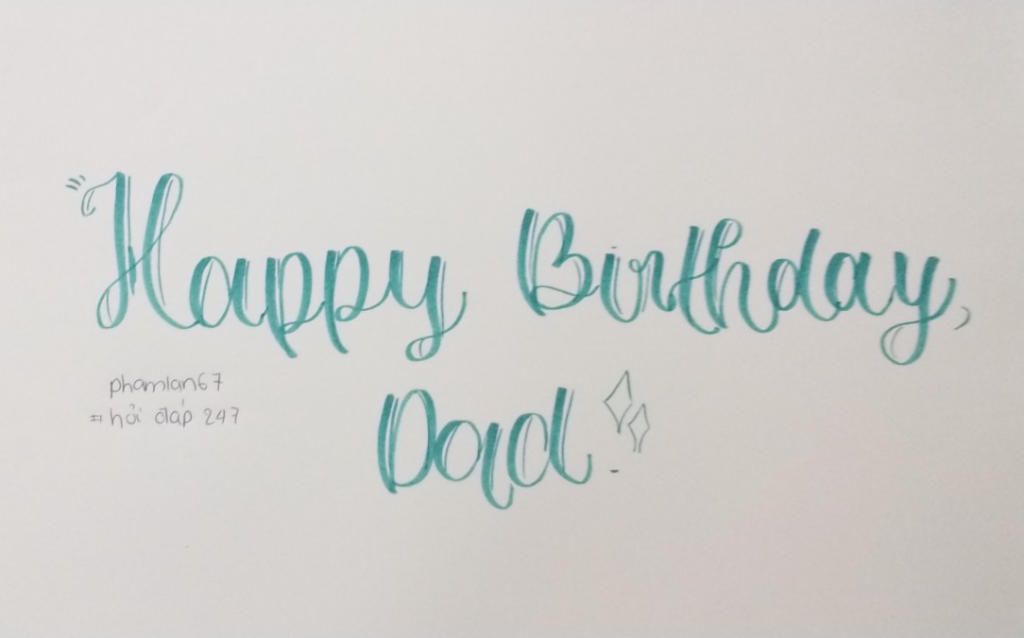 Happy Birthday,
Dad
phamlan67
# hỏi đáp 247